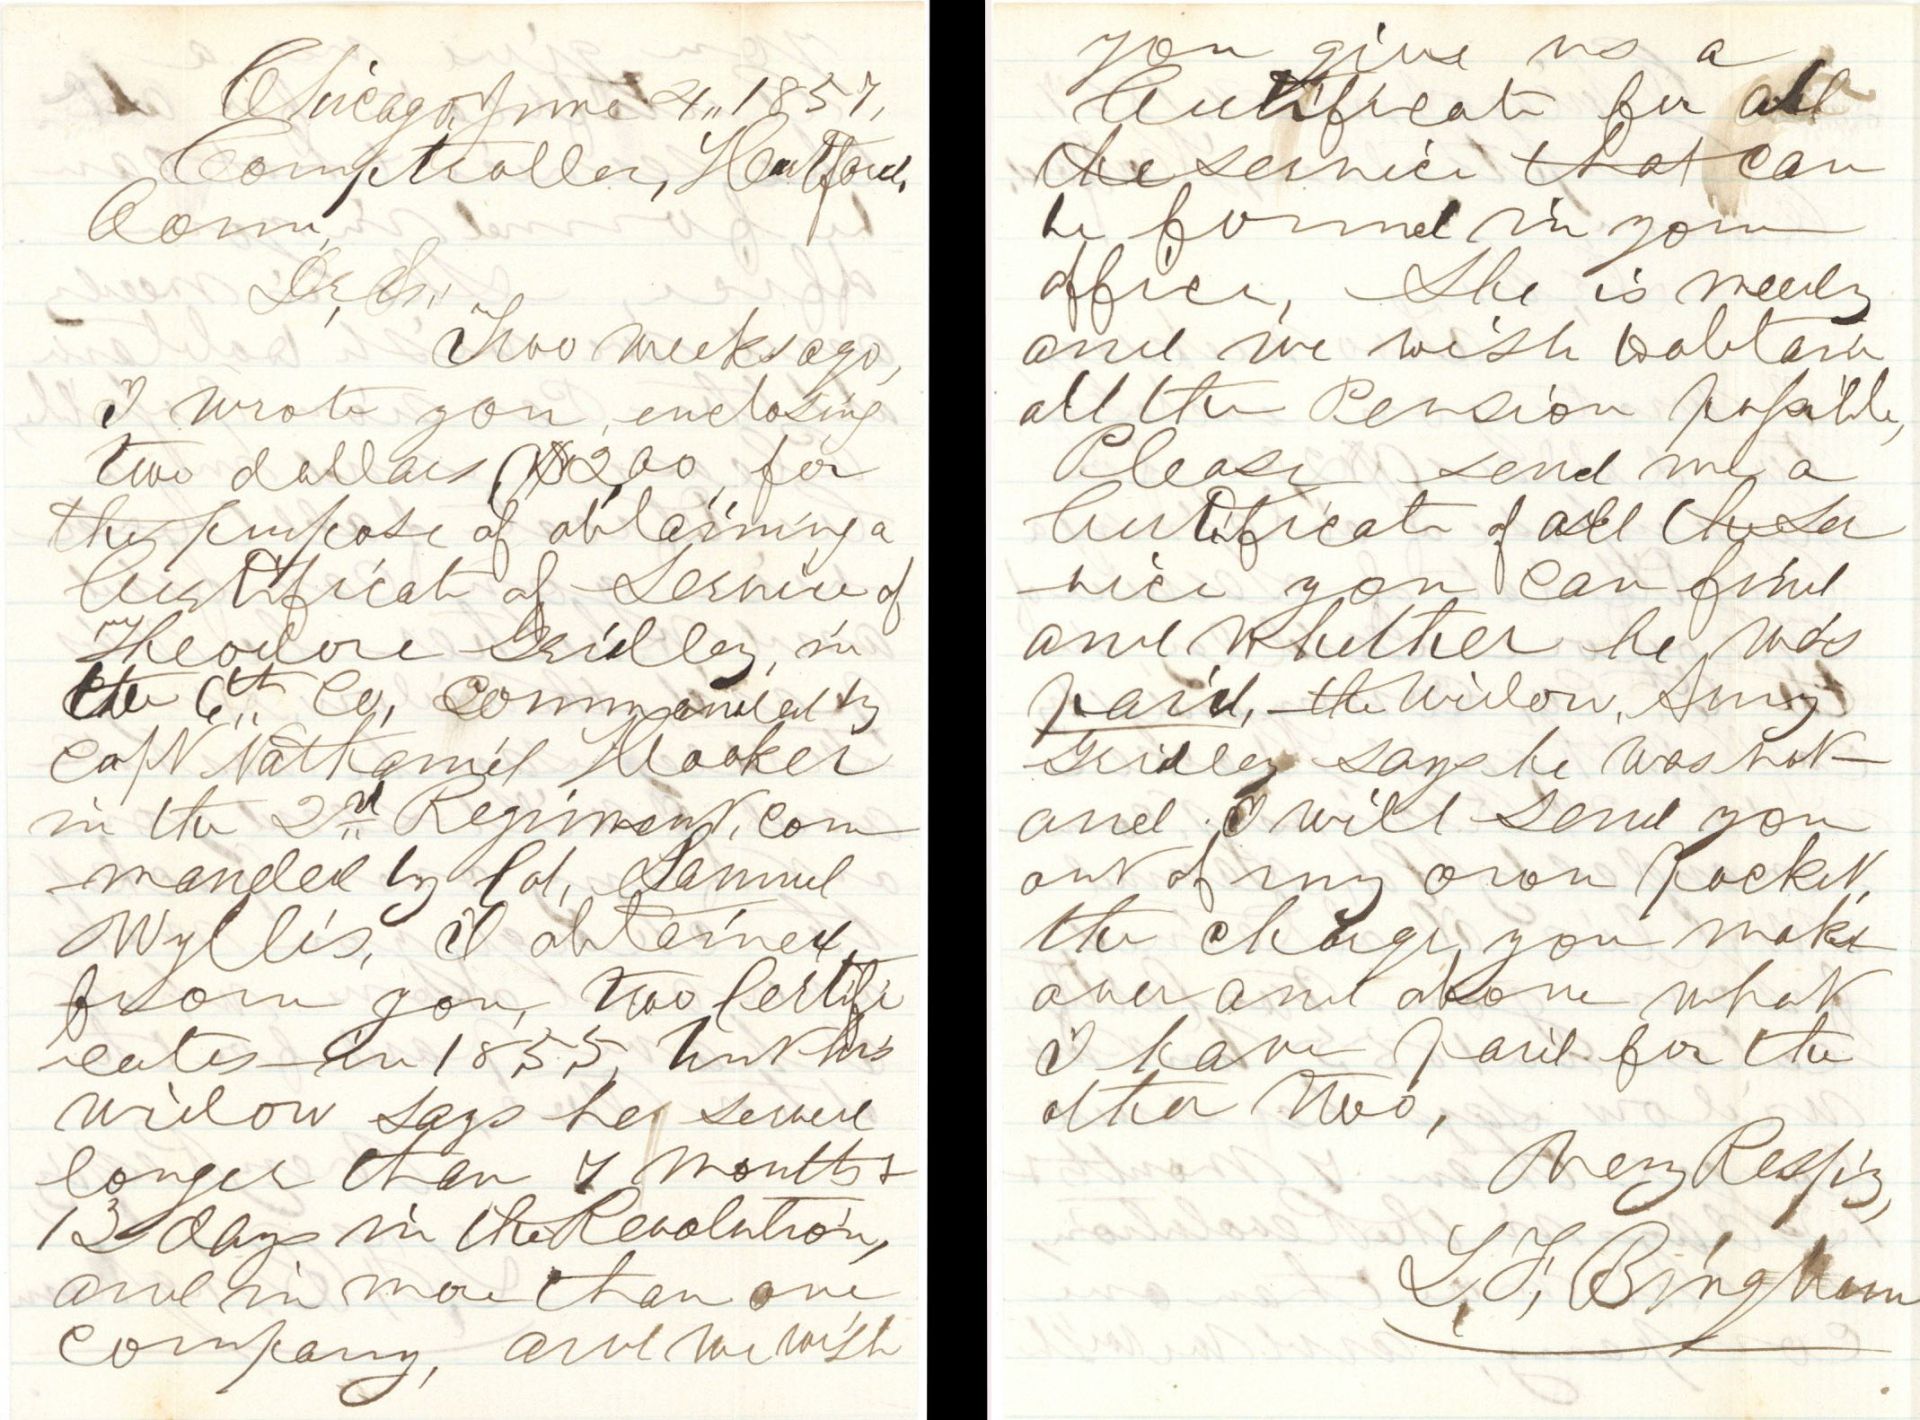 Chicago, June 4,, 1857,
Comptroller, Hartford,
Conn,
Dr, Sr,
Two weeks ago,
I wrote you, enclosing
two dollars, $2,00, for
the purpose of obtaining a
Certificate of Service of
Theodore Gridley, in
the 6th Co, commanded by
Capt Nathaniel Hooker
in the 2nd Regiment, com
manded by Col, Samuel
Wyllis, I obtained,
from you, two Certifi
cates in 1855, but his
widow says he served
longer than 7 months &
13 days in the Revolution,
and in more than one
company, and we wish
you give us a
Certificate for all
the service that can
be found in your
office, She is needy
and we wish to obtain
all the Pension possible,
Please send me a
Certificate of all the ser
vice you can find
and whether he was
paid, the widow, Amy
Gridley says he was not
and I will send you
out of my own pocket,
the charge, you make
over and above what
I have paid for the
other two,
Very Respy,
L, F, Bingham